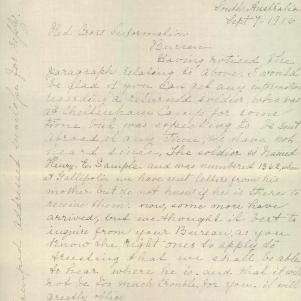 South Australia
Sept 7. 1916
Red Cross Information
Bureau
Having noticed the
paragraph relating to above, I would
be glad if you can get any information
regarding a returned soldier, who was
at Cheltenham Camp for some
time and was expecting to be sent
abroad at any time, we have not
heard since. The soldier is named
Henry. E. Gample and was numbered 1362, when
at Gallipoli we have sent letters from his
mother but do not know if he is there to
receive them. now, some more have
arrived, but we thought it best to
inquire from your Bureau, as you
know the right ones to apply to
trusting that we shall be able
to hear where he is. and that it will
not be too much trouble, for you, it will
greatly oblige
stamped addressed envelope for reply.